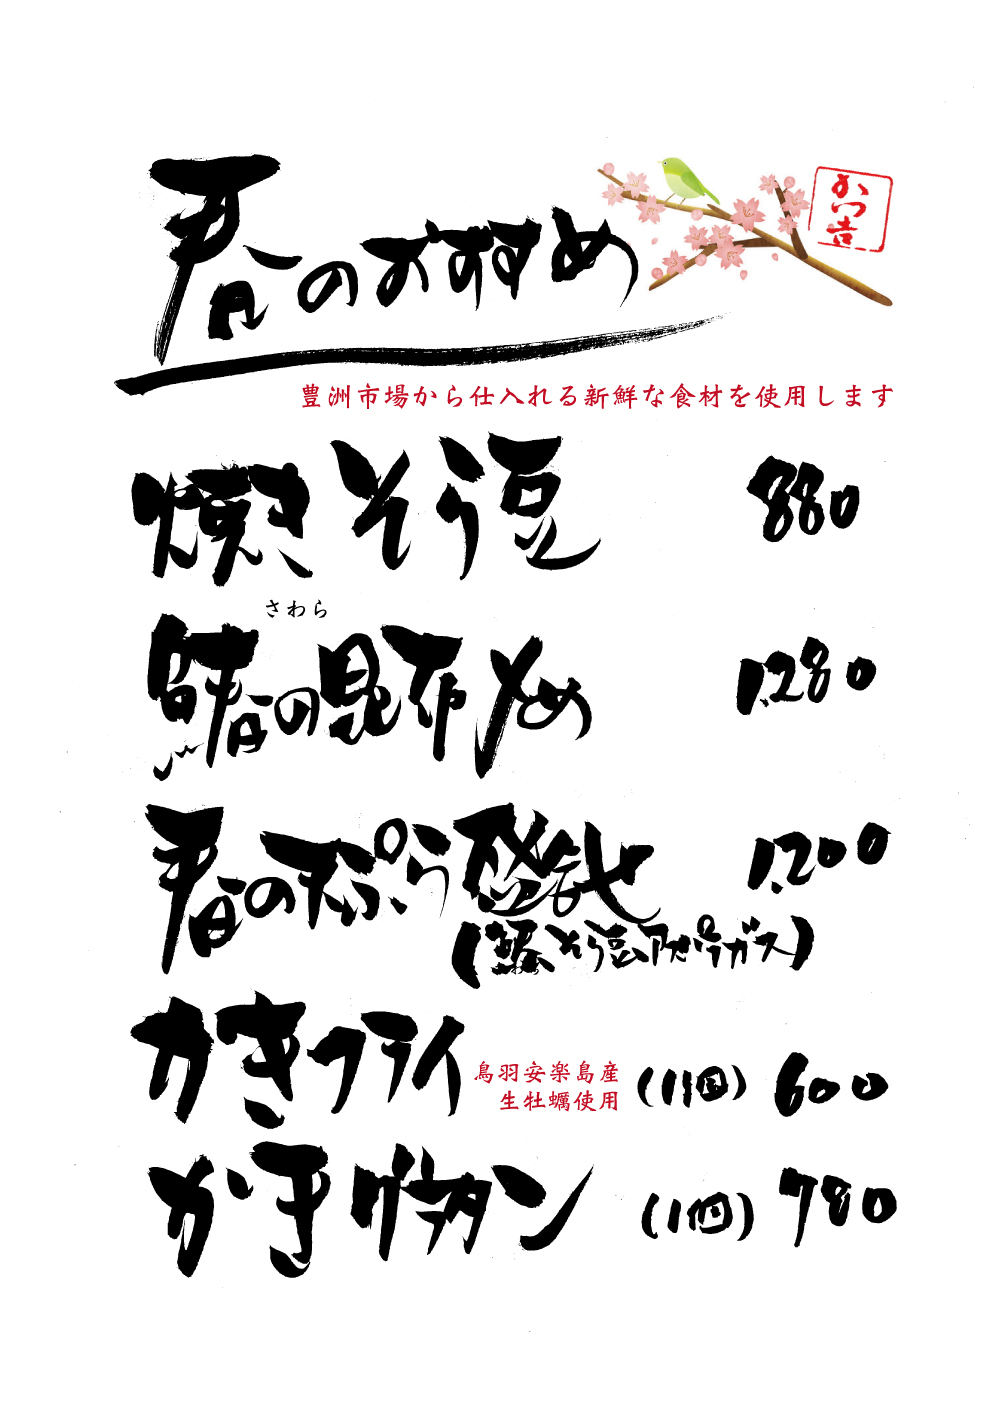 春のおすすめ
かつ吉
豊洲市場から仕入れる新鮮な食材を使用します
焼きそら豆 880
さわら
鰆の昆布〆め 1,280
春の天ぷら盛合せ 1,200
そら豆、アスパラガス)
かきフライ 鳥羽安楽島産 (1個) 600
生牡蠣使用
かきグラタン (1個) 780